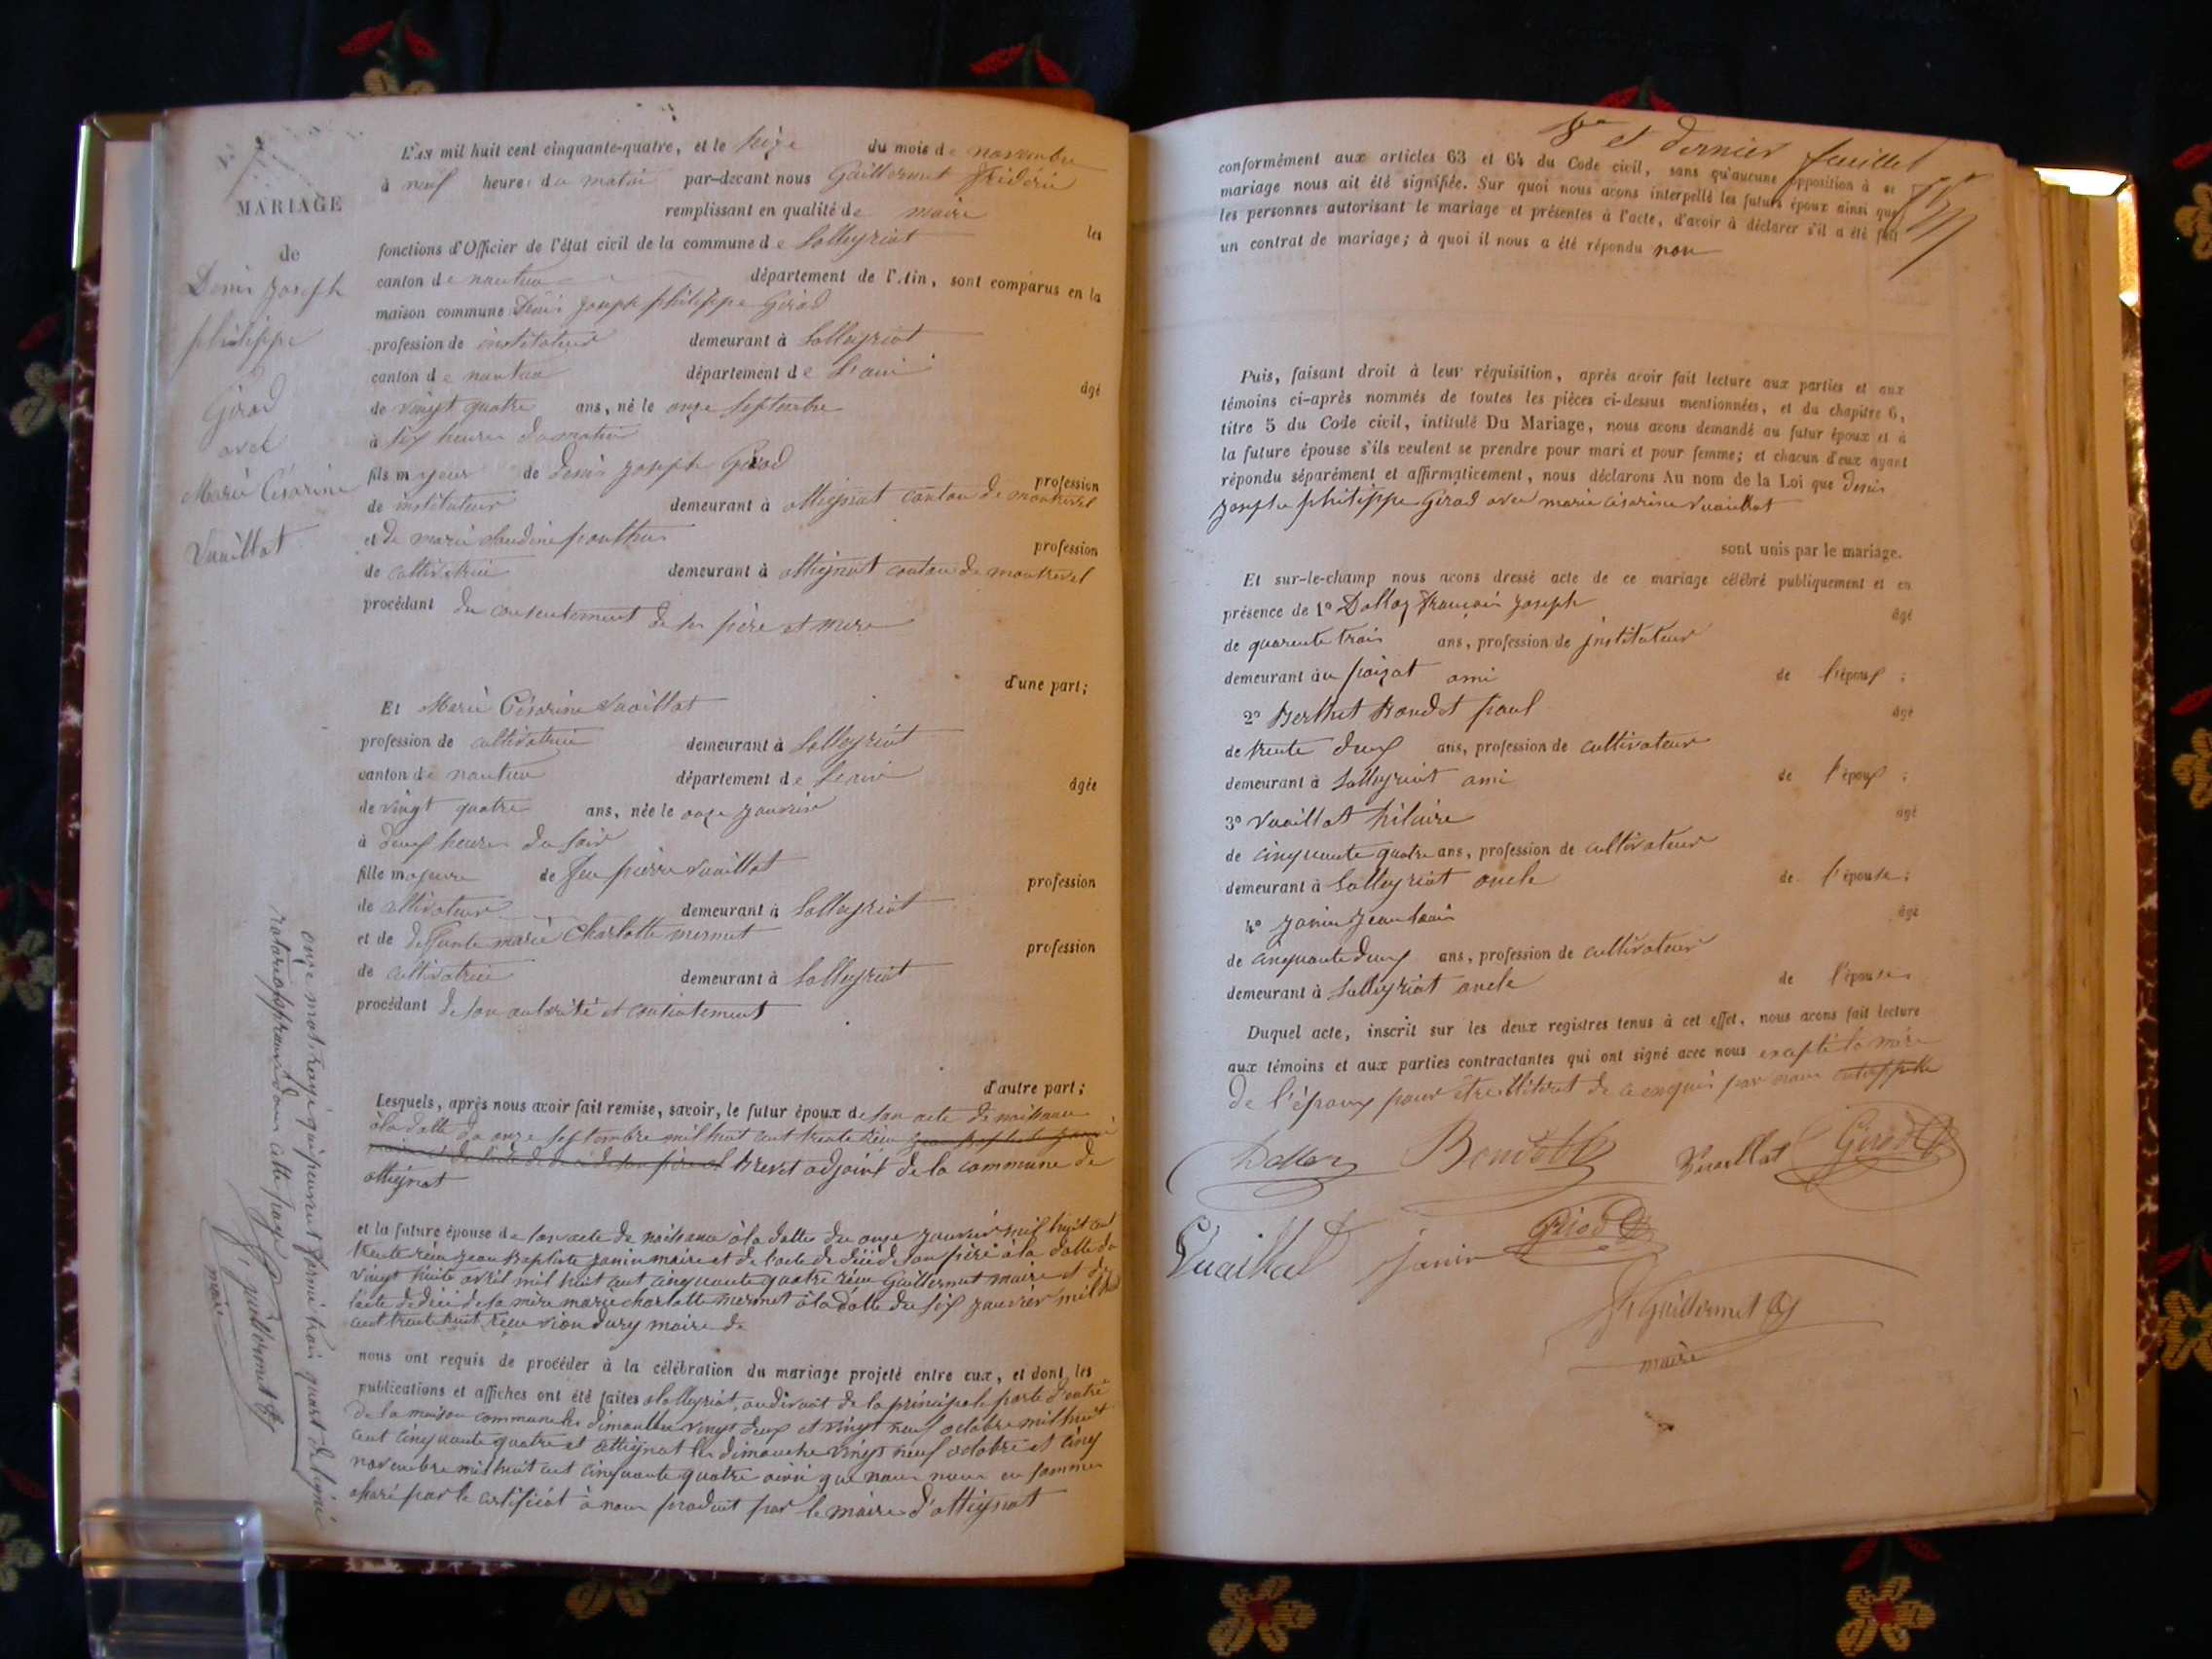 MARIAGE
de
Denis Joseph
philippe
Girod
avec
Marie Césarine
Vuaillat
L'an mil huit cent cinquante-quatre, et le seize du mois de novembre
à neuf heures du matin par-devant nous Guillermet frédéric
remplissant en qualité de maire les
fonctions d'Officier de l'état civil de la commune de Lalleyriat
canton de nantua département de l'Ain, sont comparus en la
maison commune Denis Joseph philippe Girod
profession de instituteur demeurant à Lalleyriat
canton de nantua département de L'ain âgé
de vingt quatre ans, né le onze Septembre
à six heures du matin
fils majeur de Denis Joseph Girod profession
de instituteur demeurant à attignat canton de montrevel
et de marie claudine ponthus profession
de cultivatrice demeurant à attignat canton de montrevel
procédant du consentement de ses père et mere
d'une part;
Et Marie Césarine Vuaillat
profession de cultivatrice demeurant à Lalleyriat
canton de nantua département de L'ain âgée
de vingt quatre ans, née le onze janvier
à deux heures du soir
fille majeure de feu pierre Vuaillat profession
de cultivateur demeurant à Lalleyriat
et de deffunte marie Charlotte mermet profession
de cultivatrice demeurant à Lalleyriat
procédant de son autorité et consentement
d'autre part;
Lesquels, après nous avoir fait remise, savoir, le futur époux de son acte de naissance
à la datte du onze septembre mil huit cent trente réçu
Brevet adjoint de la commune de
attignat
et la future épouse de son acte de naissance à la datte du onze janvier mil huit cent
trente réçu jean Baptiste janin maire et de l'acte de décé de son père à la datte du
vingt huit avril mil huit cent cinquante quatre réçu Guillermet maire et de
l'acte de décé de sa mère marie charlotte mermet à la datte du six janvier mil huit
cent trente huit réçu maire de
nous ont requis de procéder à la célébration du mariage projeté entre eux, et dont les
publications et affiches ont été faites à Lalleyriat, au devant de la principale porte d'entré
de la maison commune les dimanches vingt deux et vingt neuf octobre mil huit
cent cinquante quatre et attignat les dimanche vingt neuf octobre et cinq
novembre mil huit cent cinquante quatre ainsi que nous nous en sommes
par le certificat à nous produit par le maire d'attignat
onze mots rayé qui peuvent former trois quart de ligne
dans cette page
f guillermet
maire
et dernier feuillet
conformément aux articles 63 et 64 du Code civil, sans qu'aucune opposition à ce
mariage nous ait été signifiée. Sur quoi nous avons interpellé les futurs époux ainsi que
les personnes autorisant le mariage et présentes à l'acte, d'avoir à déclarer s'il a été fait
un contrat de mariage; à quoi il nous a été répondu non
Puis, faisant droit à leur réquisition, après avoir fait lecture aux parties et aux
témoins ci-après nommés de toutes les pièces ci-dessus mentionnées, et du chapitre 6,
titre 5 du Code civil, intitulé Du Mariage, nous avons demandé au futur époux et à
la future épouse s'ils veulent se prendre pour mari et pour femme; et chacun d'eux ayant
répondu séparément et affirmativement, nous déclarons Au nom de la Loi que Denis
Joseph philippe Girod avec marie césarine Vuaillat
sont unis par le mariage.
Et sur-le-champ nous avons dressé acte de ce mariage célébré publiquement et en
présence de 1° Dalloz françois joseph âgé
de quarente trois ans, profession de instituteur
demeurant au poizat ami de l'époux;
2° Berthet Bondet paul âgé
de trente deux ans, profession de cultivateur
demeurant à Lalleyriat ami de l'époux;
3° Vuaillat hilaire âgé
de cinquante quatre ans, profession de cultivateur
demeurant à Lalleyriat oncle de l'épouse;
4° janin jean louis âgé
de cinquante deux ans, profession de cultivateur
demeurant à Lalleyriat oncle de l'épouse
Duquel acte, inscrit sur les deux registres tenus à cet effet, nous avons fait lecture
aux témoins et aux parties contractantes qui ont signé avec nous excepté la mère
de l'époux pour être illiterat de ce enquis par nous
Dalloz Bondet Vuaillat Girod
Vuaillat janin Girod
f Guillermet
maire